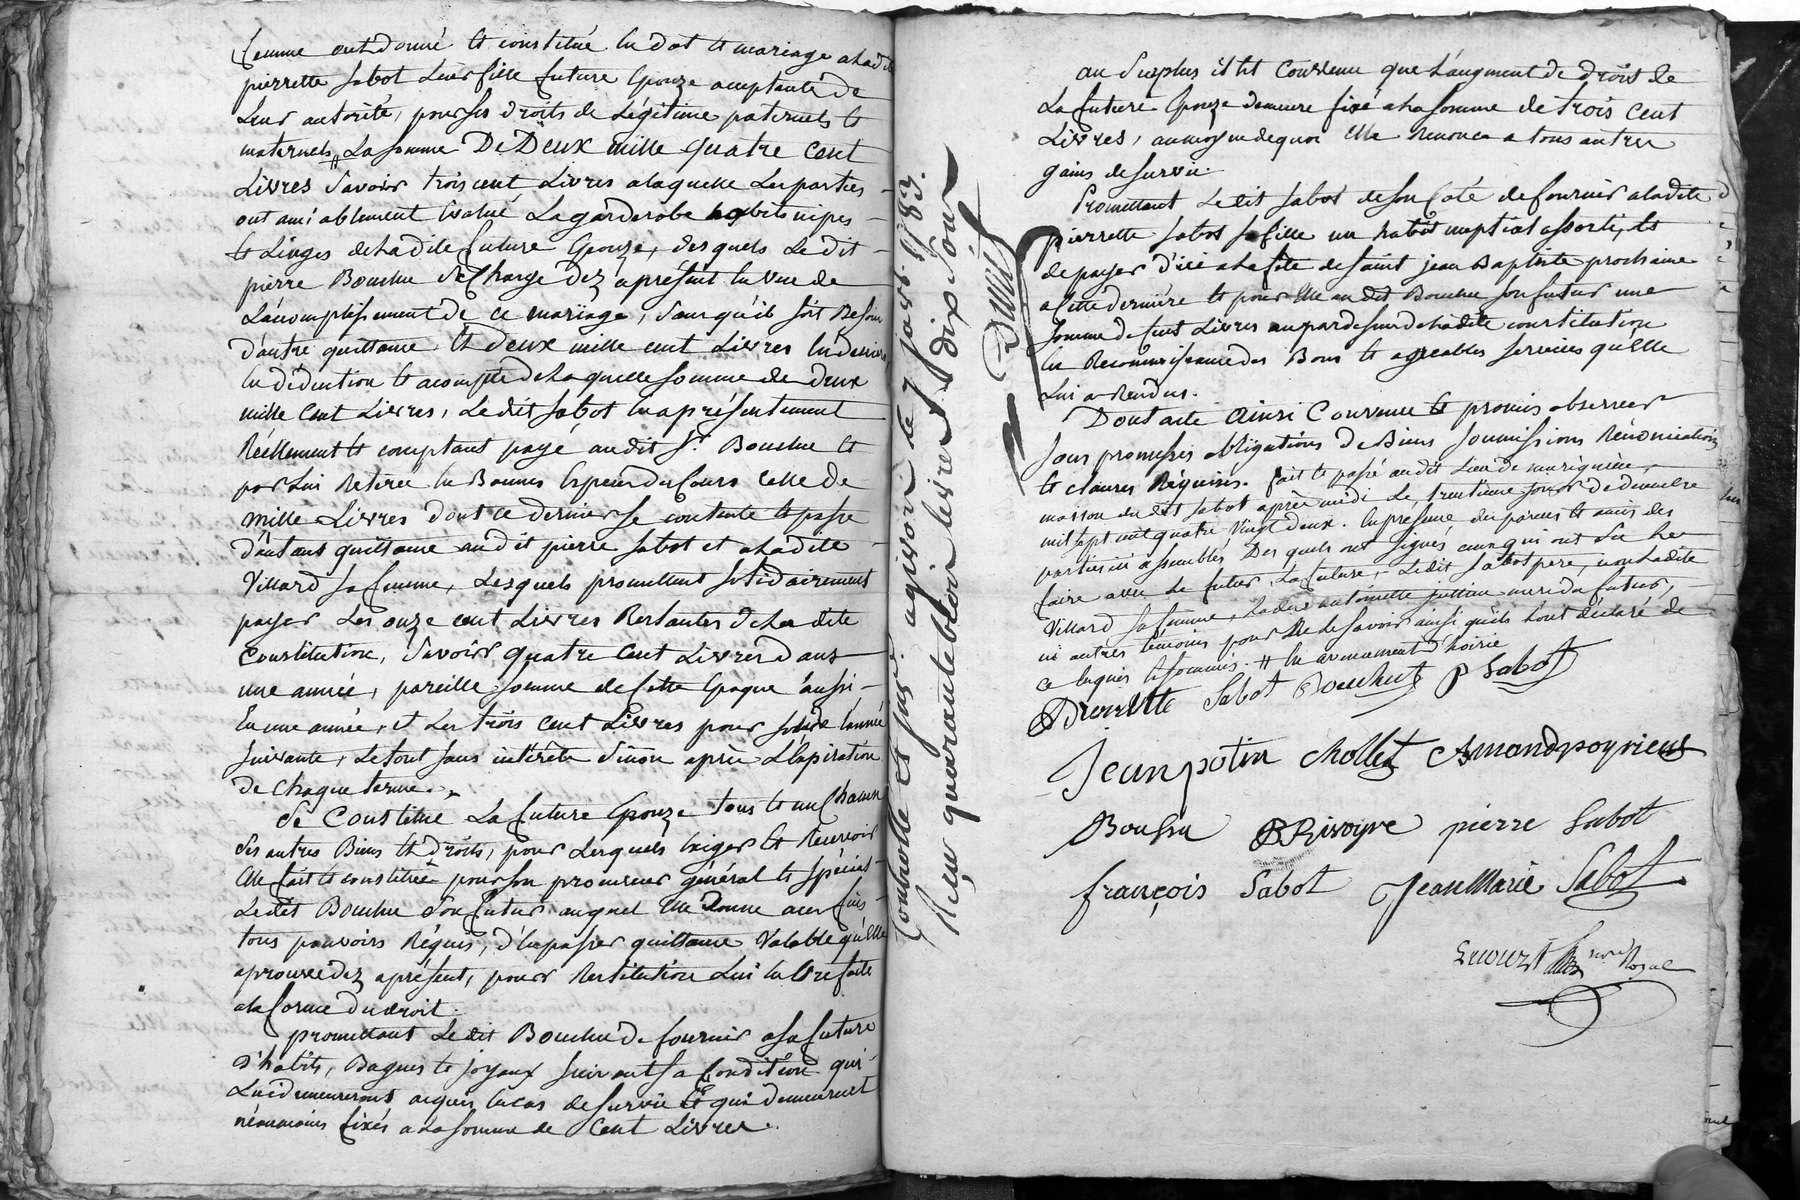 femme ont donné et constitué en dot et mariage a ladite
pierrette Sabot Leur fille future Epouze acceptante de
Leur autorité, pour ses droits de Légitime paternels et
maternels, La somme De Deux mille quatre cent
Livres Savoir trois cent Livres a laquelle Les parties
ont ami ablement Evalué La garderobe habits nipes
et Linges de ladite future Epouze, desquels Le dit
pierre Bouchu se Charge dez aprésent en vue de
L'acomplissement de ce mariage, Sans qu'il soit Besoin
d'autre quittance et deux mille cent Livres en deniers
en déduction et acompte de Laquelle somme de deux
mille Cent Livres, Le dit Sabot en a présentement
Réellement et comptant payé audit Sr. Bouchu et
par Lui Retirée en Bonnes Especes du Cours celle de
mille Livres dont ce dernier se contente et passe
d'autant quittance audit pierre Sabot et a ladite
Villard sa femme, Lesquels promettent solidairement
payer Les onze cent Livres Restantes de la dite
Constitution, Savoir quatre Cent Livres dans
une année, pareille somme de Cette Epoque aussi
En une année, et Les trois cent Livres pour solde l'année
suivante, Le tout sans intérêts sinon après L'Expiration
de Chaque terme.
Se Constitue La future Epouze tous et un Chacun
Ses autres Biens et droits, pour Lesquels Exiger et Recevoir
Elle fait et constitue pour son procureur général et spécial
Ledit Bouchu son futur auquel Elle donne aux fins
tous pouvoirs Réquis, d'En passer quittance Valable qu'Elle
aprouve dez aprésent, pour Restitution Lui En Etre faite
a la forme du droit.
promettant Le dit Bouchu de fournir a sa future
d'habits, Bagues et joyaux suivant sa Condition qui
Lui demeureront acquis En cas de survie Et qui demeurent
néanmoins fixés a La somme de Cent Livres.
Controllé et Insé. a givors le 7 janv. 1783.
Reçu quarante trois livres dix sous
au Surplus il Est Convenu que L'augment de droit de
La future Epouze demeure fixé a La somme de trois Cent
Livres, au moyen de quoi Elle Renonce a tous autres
gains de survie.
Promettant Le dit Sabot de son Coté de fournir a ladite
pierrette Sabot sa fille un habit nuptial assorti, Et
de payer d'ici a la fete de saint jean Baptiste prochaine
a Cette dernière et pour Elle au dit Bouchu son futur une
somme de Cent Livres au par dessus de ladite constitution
En Reconnoissance des Bons et agréables services qu'Elle
Lui a Rendus.
Dont acte Ainsi Convenu Et promis observer
sous promesses obligations de Biens soumissions Rénonciations
et clauses Réquises. fait et passé audit Lieu de
maison du dit Sabot après midi Le trentieme jour de décembre
mil sept cent quatre Vingt deux. En présence des parens et amis des
parties ici assemblés Des quels ont signés ceux qui ont Su Le
faire avec Le futur La future, Ledit Sabot pere, non ladite
Villard sa femme, Ladite antoinette mere du futur,
ni autres témoins pour Ne Le savoir ainsi qu'ils L'ont déclaré de
ce Enquis et sommés. # En avancement d'hoirie
Pierrette Sabot Bouchut P Sabot
Jean potin Chollet Amand poyrieux
Bouchu Rivoyre pierre Sabot
françois Sabot Jean Marie Sabot
nore Royal